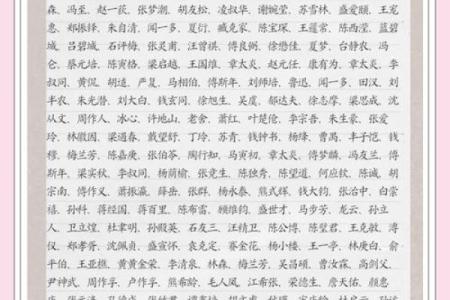 森、冯至、赵一荻、张梦潮、胡友松、凌叔华、谢婉莹、苏雪林、盛爱颐、王宠
惠、郑振铎、朱自清、闻一多、夏衍、臧克家、陈宝琛、王蘧常、陈西滢、蓝碧
城、吕碧城、石评梅、张灵甫、汪曾祺、傅良弼、徐懋佳、夏梦、台静农、冯
仑、蔡元培、陈寅恪、梁启超、王国维、章太炎、赵元任、康有为、章太炎、李
叔同、黄侃、胡道、严复、马相伯、傅斯年、刘师培、鲁迅、闻一多、田汉、刘
半农、朱光潜、刘大白、钱玄同、徐旭生、吴虞、郁达夫、徐志摩、梁思成、沈
从文、周作人、冰心、许地山、老舍、萧红、叶楚伧、李宗吾、朱生豪、张爱
玲、林徽因、梁遇春、戴望舒、丁玲、苏青、钱钟书、杨绛、曹禺、丰子恺、钱
穆、梅兰芳、陈嘉庚、张伯苓、陶行知、马寅初、章太炎、傅梦麟、冯友兰、傅
斯年、梁实秋、李叔同、杨荫榆、张竞生、陈独秀、陈望道、何应钦、陈诚、胡
宗南、傅作义、萧振瀛、薛岳、张群、杨永泰、熊式辉、钱大钧、张治中、白崇
禧、孙科、蒋经国、蒋百里、陈布雷、顾维钧、盛世才、马步芳、龙云、孙立
人、卫立煌、杜聿明、孙殿英、石友三、汪精卫、陈公博、陈璧君、王克敏、溥
仪、郑孝胥、沈佩贞、盛宣怀、袁克定、赛金花、杨小楼、王一亭、林庚白、俞
平伯、王亚樵、黄黄金荣、李清泉、林森、梅兰芳、吴昌硕、曹汝霖、高剑父、
尹神武、周作孚、卢作孚、熊希龄、毛人凤、江希张、荣德生、詹天佑、颜惠